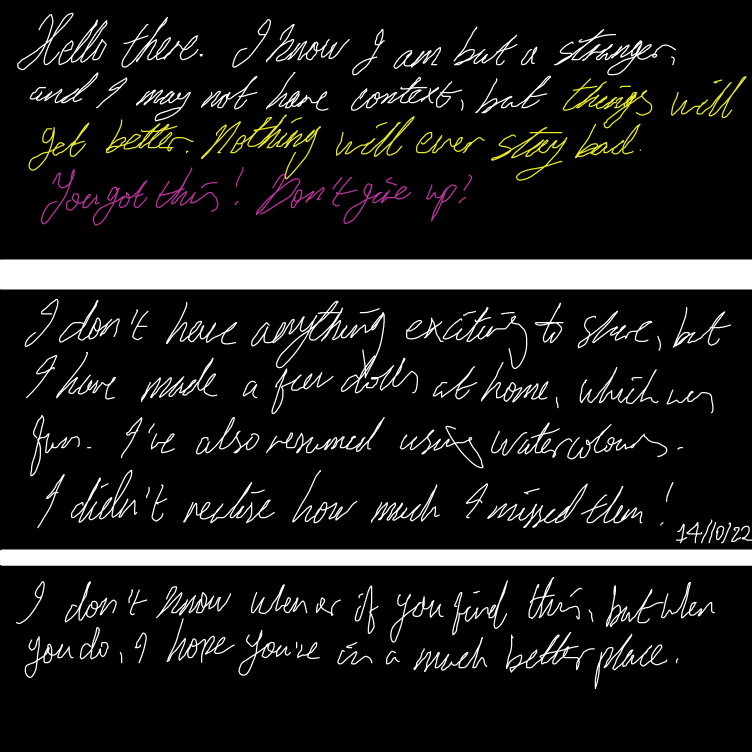 Hello there. I know I am but a stranger,
and I may not have context, but things will
get better. Nothing will ever stay bad.
You got this! Don't give up!
I don't have anything exciting to share, but
I have made a few dolls at home, which was
fun. I've also resumed using watercolours.
I didn't realise how much I missed them!
14/10/22
I don't know when or if you find this, but when
you do, I hope you're in a much better place.